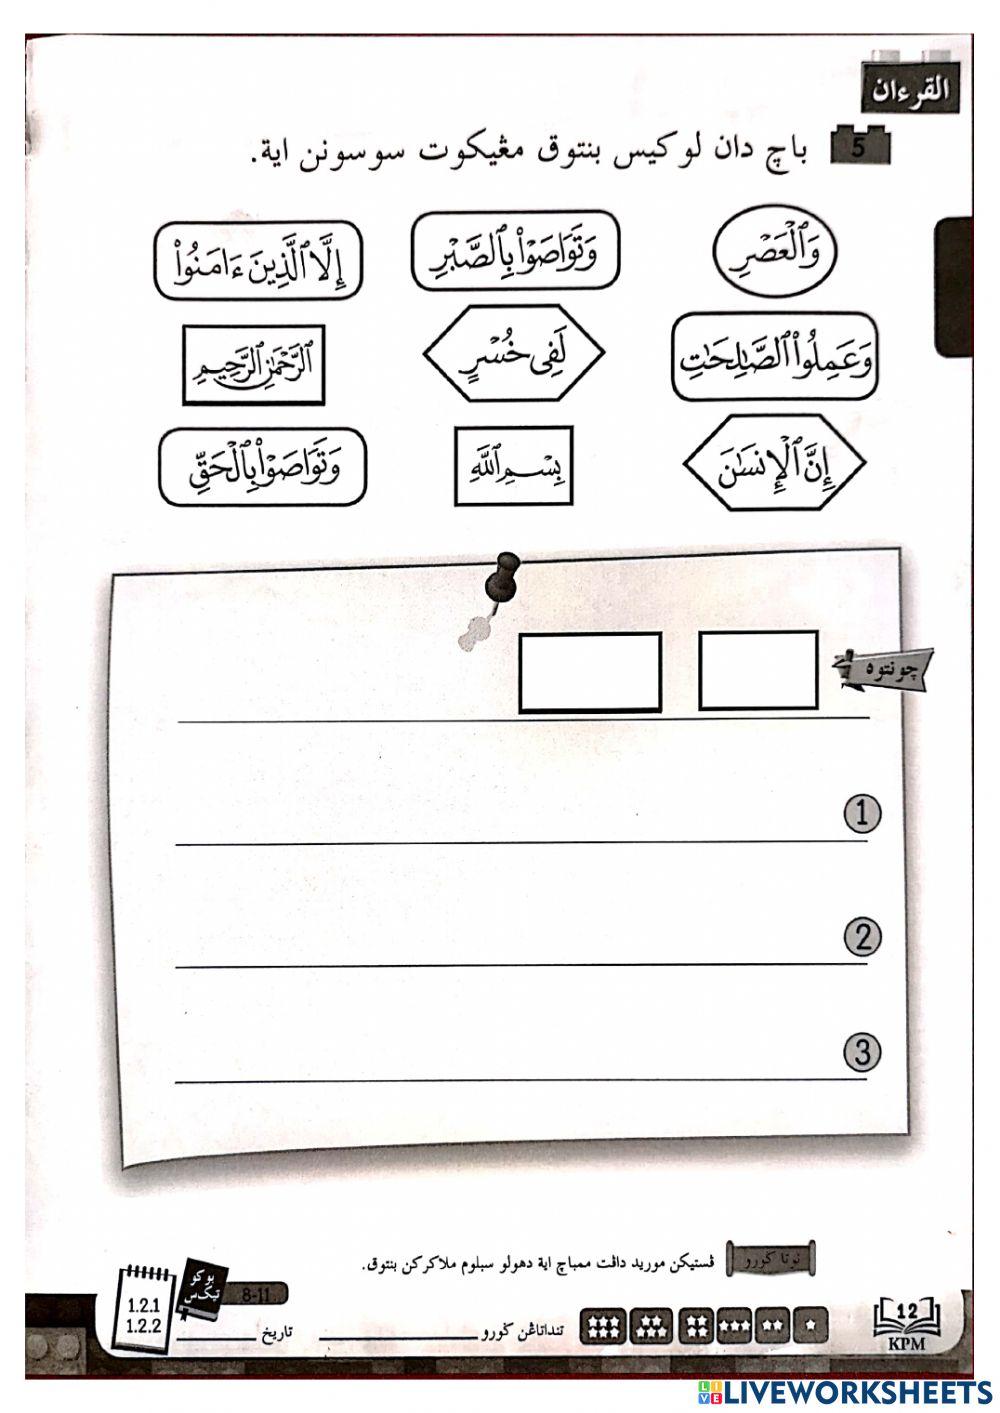 القرءان
5 باچ دان لوكيس بنتوق مڠيكوت سوسونن اية.
وَٱلْعَصْرِ
وَتَوَاصَوْا۟ بِٱلصَّبْرِ
إِلَّا ٱلَّذِينَ ءَامَنُوا۟
وَعَمِلُوا۟ ٱلصَّـٰلِحَـٰتِ
لَفِى خُسْرٍ
ٱلرَّحْمَـٰنِ ٱلرَّحِيمِ
إِنَّ ٱلْإِنسَـٰنَ
بِسْمِ ٱللَّهِ
وَتَوَاصَوْا۟ بِٱلْحَقِّ
چونتوه
1
2
3
نوتا ڬورو
ڤستيكن موريد داڤت ممباچ اية دهولو سبلوم ملاكركن بنتوق.
بوكو تيکس
8-11
1.2.1
1.2.2
تنداتاڠن ڬورو
تاريخ
12
KPM
LIVEWORKSHEETS